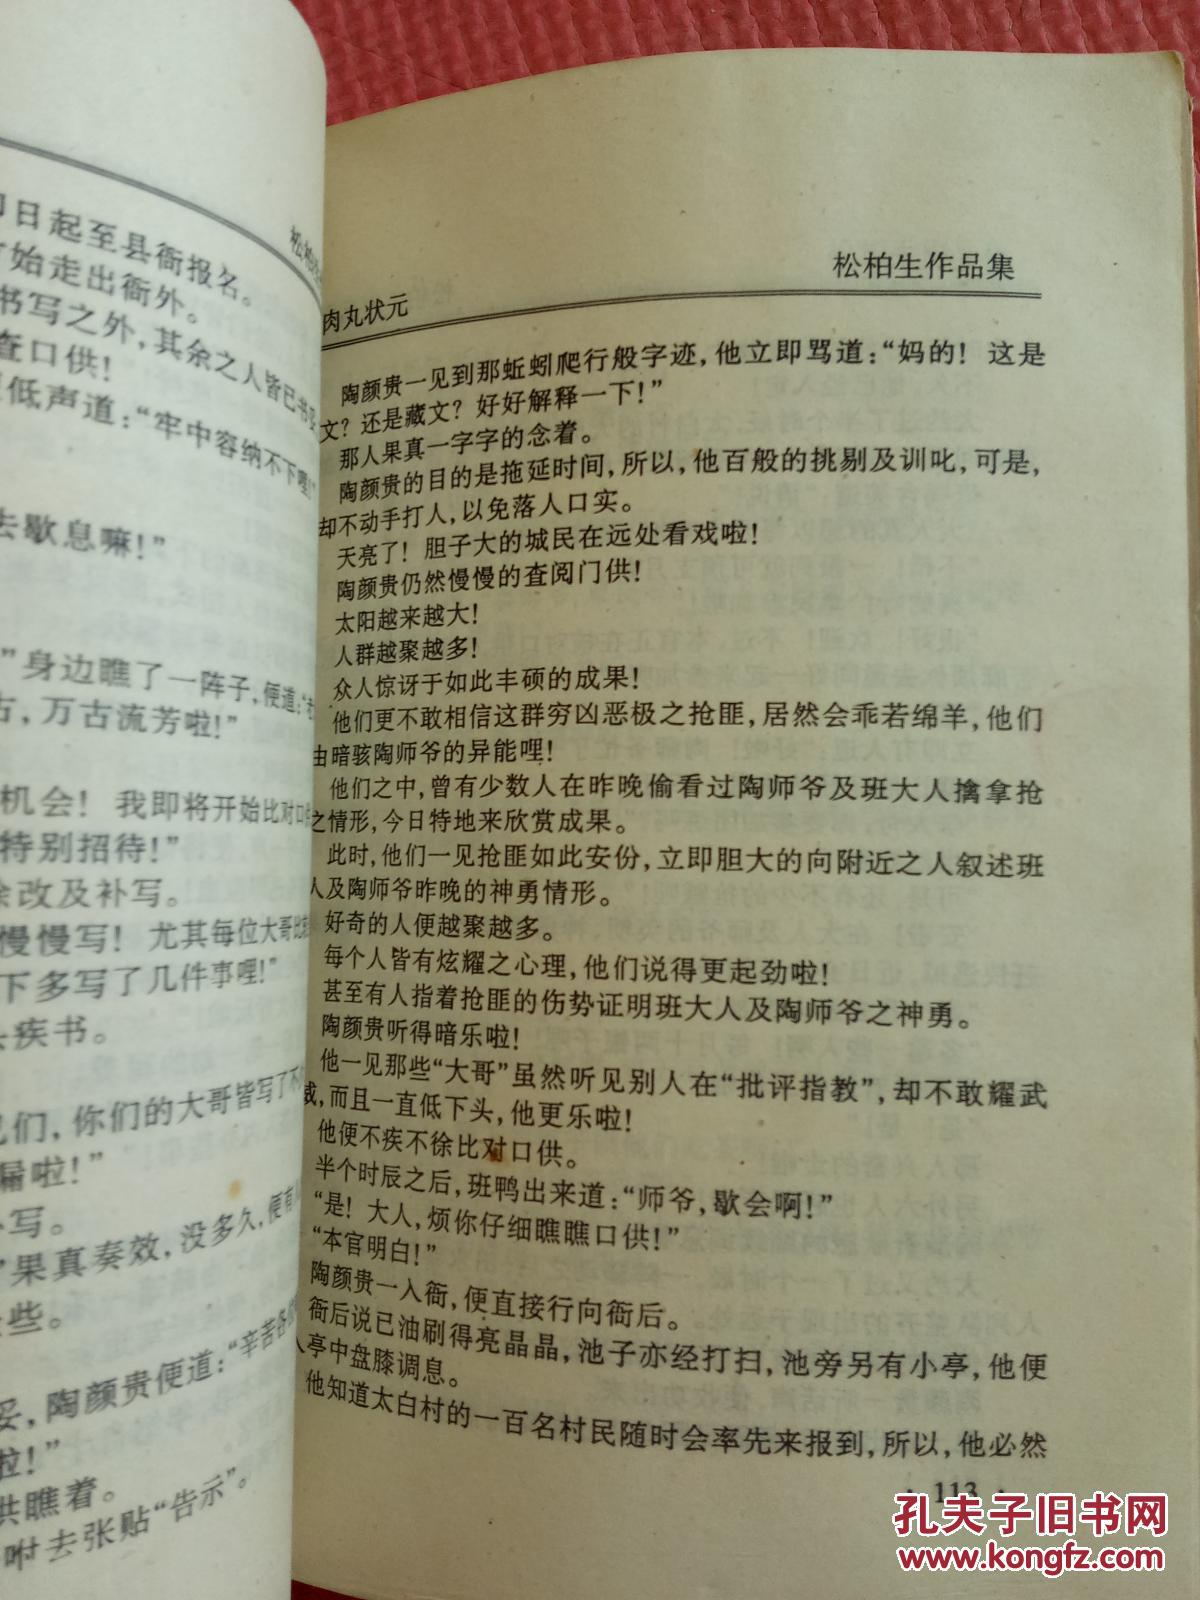 日起至县衙报名。
始走出衙外。
书写之外，其余之人皆已书妥
查口供！
低声道：“牢中容纳不下哩！”
去歇息嘛！”
”身边瞧了一阵子，便道：“
古，万古流芳啦！”
机会！我即将开始比对口供
特别招待！”
涂改及补写。
慢慢写！尤其每位大哥比
下多写了几件事哩！”
疾书。
们，你们的大哥皆写了不
漏啦！”
补写。
”果真奏效，没多久，便有
些。
妥，陶颜贵便道：“辛苦各
啦！”
供瞧着。
咐去张贴“告示”。
松柏
肉丸状元
松柏生作品集
陶颜贵一见到那蚯蚓爬行般字迹，他立即骂道：“妈的！这是
文？还是藏文？好好解释一下！”
那人果真一字字的念着。
陶颜贵的目的是拖延时间，所以，他百般的挑剔及训叱，可是，
却不动手打人，以免落人口实。
天亮了！胆子大的城民在远处看戏啦！
陶颜贵仍然慢慢的查阅门供！
太阳越来越大！
人群越聚越多！
众人惊讶于如此丰硕的成果！
他们更不敢相信这群穷凶恶极之抢匪，居然会乖若绵羊，他们
由暗骇陶师爷的异能哩！
他们之中，曾有少数人在昨晚偷看过陶师爷及班大人擒拿抢
之情形，今日特地来欣赏成果。
此时，他们一见抢匪如此安份，立即胆大的向附近之人叙述班
人及陶师爷昨晚的神勇情形。
好奇的人便越聚越多。
每个人皆有炫耀之心理，他们说得更起劲啦！
甚至有人指着抢匪的伤势证明班大人及陶师爷之神勇。
陶颜贵听得暗乐啦！
他一见那些“大哥”虽然听见别人在“批评指教”，却不敢耀武
威，而且一直低下头，他更乐啦！
他便不疾不徐比对口供。
半个时辰之后，班鸭出来道：“师爷，歇会啊！”
“是！大人，烦你仔细瞧瞧口供！”
“本官明白！”
陶颜贵一入衙，便直接行向衙后。
衙后说已油刷得亮晶晶，池子亦经打扫，池旁另有小亭，他便
人亭中盘膝调息。
他知道太白村的一百名村民随时会率先来报到，所以，他必然
· 113 ·
孔夫子旧书网
www.kongfz.com